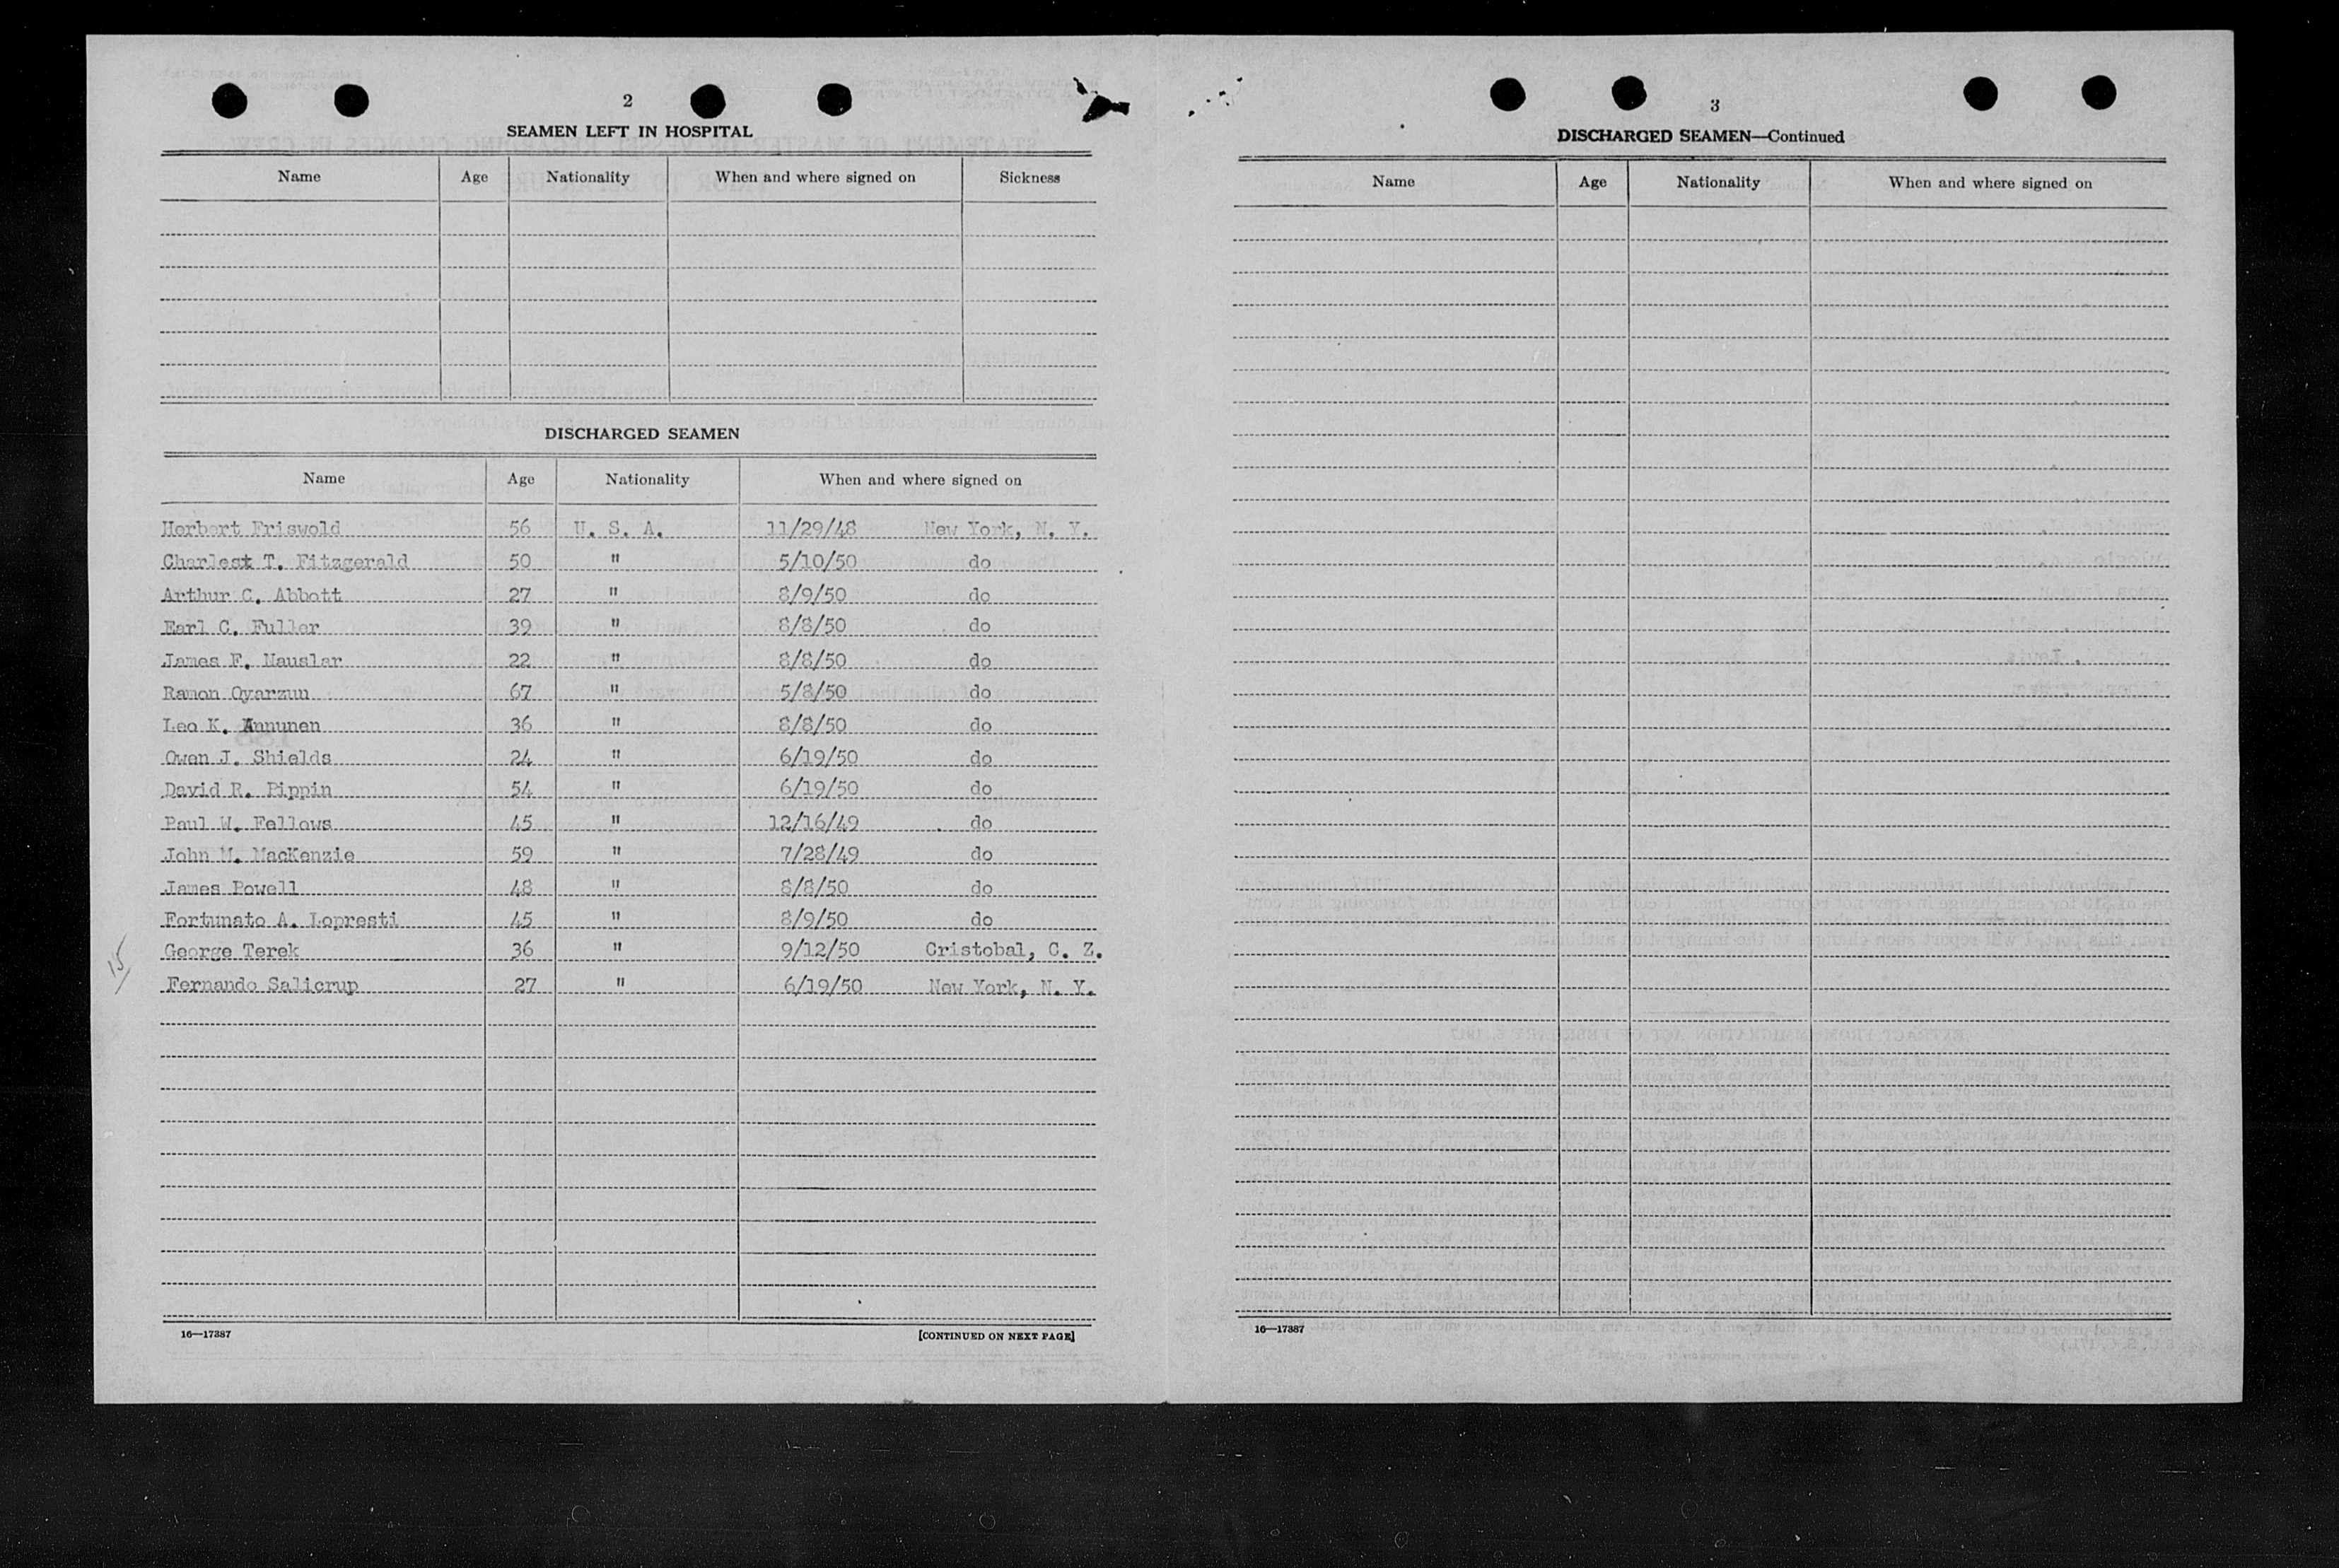 2
SEAMEN LEFT IN HOSPITAL
Name Age Nationality When and where signed on Sickness
DISCHARGED SEAMEN
Name Age Nationality When and where signed on
Herbert Friswold 56 U. S. A. 11/29/48 New York, N. Y.
Charlest T. Fitzgerald 50 " 5/10/50 do
Arthur C. Abbott 27 " 8/9/50 do
Earl C. Fuller 39 " 8/8/50 do
James F. Nauslar 22 " 8/8/50 do
Ramon Oyarzun 67 " 5/8/50 do
Leo K. Annunen 36 " 8/8/50 do
Owen J. Shields 24 " 6/19/50 do
David R. Pippin 54 " 6/19/50 do
Paul W. Fellows 45 " 12/16/49 do
John M. MacKenzie 59 " 7/28/49 do
James Powell 48 " 8/8/50 do
Fortunato A. Lopresti 45 " 8/9/50 do
George Terek 36 " 9/12/50 Cristobal, C. Z.
15
Fernando Salicrup 27 " 6/19/50 New York, N. Y.
16—17387 [CONTINUED ON NEXT PAGE]
3
DISCHARGED SEAMEN—Continued
Name Age Nationality When and where signed on
16—17387